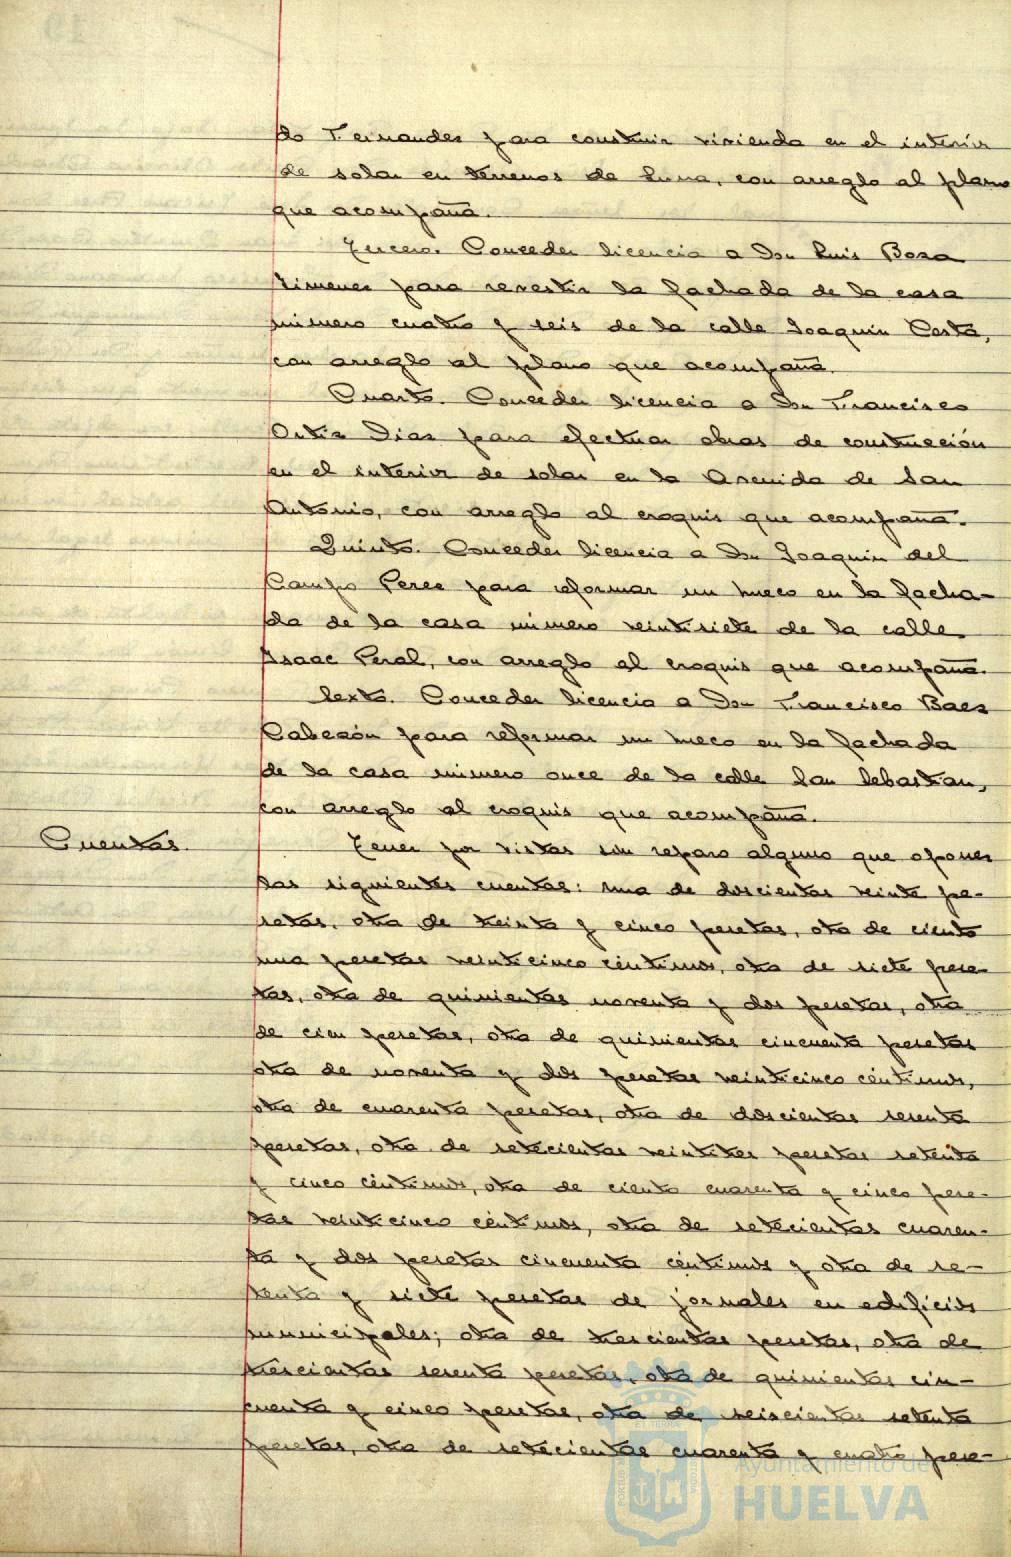 do Fernandez para construir vivienda en el interior
de solar en terrenos de Luna, con arreglo al plano
que acompaña.
Tercero. Conceder licencia a Don Luis Boza
Jimenez para revestir la fachada de la casa
número cuatro y seis de la calle Joaquin Costa,
con arreglo al plano que acompaña.
Cuarto. Conceder licencia a Don Francisco
Ortiz Diaz para efectuar obras de construcción
en el interior de solar en la Avenida de San
Antonio, con arreglo al croquis que acompaña.
Quinto. Conceder licencia a Don Joaquin del
Campo Perez para reformar un hueco en la facha-
da de la casa número veintisiete de la calle
Isaac Peral, con arreglo al croquis que acompaña.
Sexto. Conceder licencia a Don Francisco Baez
Cabezón para reformar un hueco en la fachada
de la casa número once de la calle San Sebastian,
con arreglo al croquis que acompaña.
Cuentas.
Tener por vistas sin reparo alguno que oponer
las siguientes cuentas: una de doscientas veinte pe-
setas, otra de treinta y cinco pesetas, otra de ciento
una pesetas veinticinco céntimos, otra de siete pese-
tas, otra de quinientas noventa y dos pesetas, otra
de cien pesetas, otra de quinientas cincuenta pesetas
otra de noventa y dos pesetas veinticinco céntimos,
otra de cuarenta pesetas, otra de doscientas sesenta
pesetas, otra de setecientas veintitres pesetas setenta
y cinco céntimos, otra de ciento cuarenta y cinco pese-
tas veinticinco céntimos, otra de setecientas cuaren-
ta y dos pesetas cincuenta céntimos y otra de se-
tenta y siete pesetas de jornales en edificios
municipales; otra de trescientas pesetas, otra de
trescientas sesenta pesetas, otra de quinientas cin-
cuenta y cinco pesetas, otra de seiscientas setenta
pesetas, otra de setecientas cuarenta y cuatro pese-
Ayuntamiento de
HUELVA